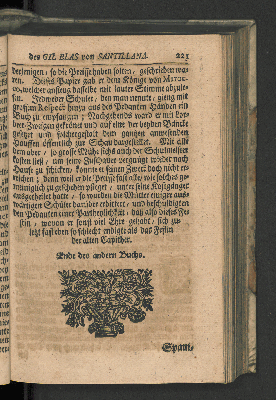 des GIL BLAS von SANTILLANA. 223
derjenigen, so die Preisse haben solten, geschrieben wa-
ren. Dieses Papier gab er dem Könige von
welcher anfieng dasselbe mit lauter Stimme abzule-
sen. Jedweder Schüler, den man nennte, gieng mit
grossem Respect hinzu aus des Pedanten Händen ein
Buch zu empfangen; Nachgehends ward er mit Lor-
beer-Zweigen gekrönet und auf eine der beyden Bäncke
gesetzt und solchergestalt dem gantzen anwesenden
Hauffen öffentlich zur Schau dargestellet. Mit alle
dem aber, so grosse Mühe sichs auch der Schulmeister
kosten ließ, um seine Zuschauer vergnügt wieder nach
Hause zu schicken, konnte er seinen Zweck doch nicht er-
reichen; denn weil er die Preisse fast alle, wie solches ge-
meiniglich zu geschehen pfleget, unter seine Kostgänger
ausgetheilet hatte, so wurden die Mütter einiger aus-
wärtigen Schüler darüber erbittert, und beschuldigten
den Pedanten einer Partheylichkeit, daß also dieses Fe-
stin, wovon er sonst viel Ehre gehabt, sich zu-
letzt fast eben so schlecht endigte als das Festin
der alten Lapither.
Ende des andern Buchs.
Span-